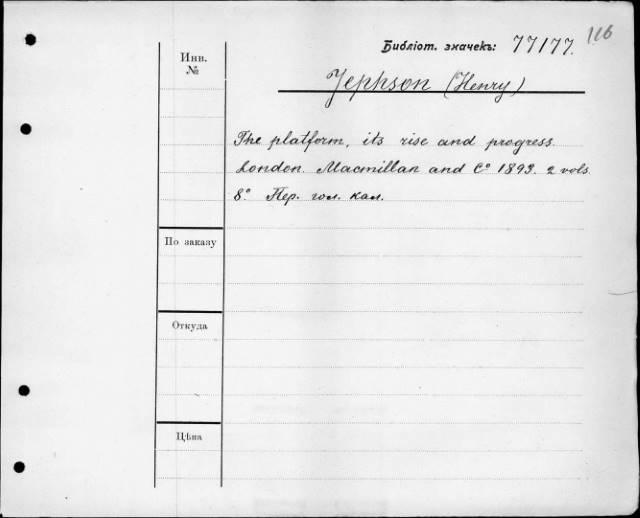 116
Библіот. значекъ: 77177.
Инв.
№
Jephson (Henry)
The platform, its rise and progress.
London. Macmillan and Cº 1893. 2 vols.
8º Пер. гол. кал.
По заказу
Откуда
Цѣна